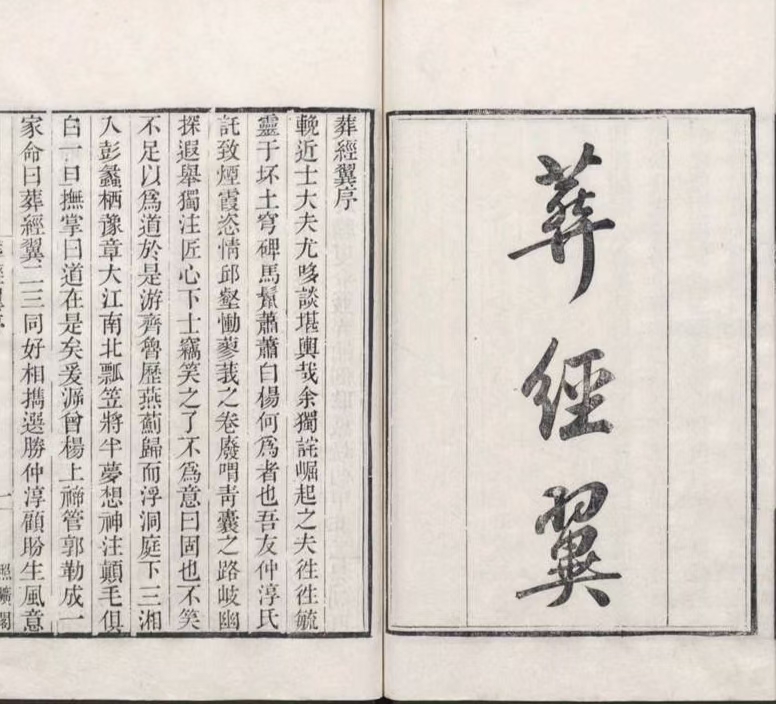 葬經翼
葬經翼序
輓近士大夫尤哆談堪輿哉余獨詫崛起之夫徃徃毓
靈于坏土穹碑馬鬣蕭蕭白楊何爲者也吾友仲淳氏
託致煙霞恣情邱壑慟蓼莪之卷廢喟靑囊之路岐幽
探遐舉獨注匠心下士竊笑之了不爲意曰固也不笑
不足以爲道於是游齊魯歷燕薊歸而浮洞庭下三湘
入彭蠡栖豫章大江南北瓢笠將半夢想神注顚毛俱
白一旦撫掌曰道在是矣爰泝曾楊上禘管郭勒成一
家命曰葬經翼二三同好相擕選勝仲淳顧盼生風意
葬經翼序
一
照曠閣